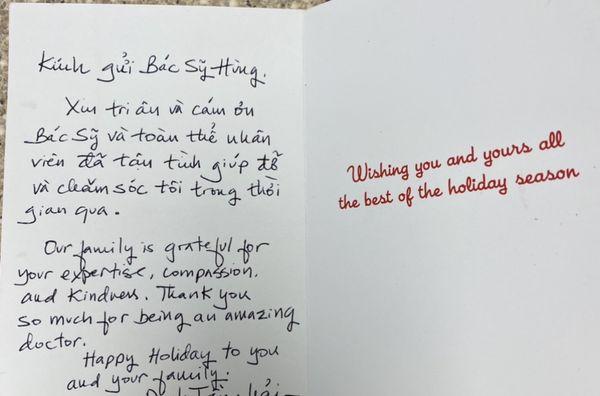 Kính gửi Bác Sỹ Hùng.
Xin tri ân và cám ơn
Bác Sỹ và toàn thể nhân
viên đã tận tình giúp đỡ
và chăm sóc tôi trong thời
gian qua.
Our family is grateful for
your expertise, compassion,
and kindness. Thank you
so much for being an amazing
doctor.
Happy Holiday to you
and your family.
Wishing you and yours all
the best of the holiday season